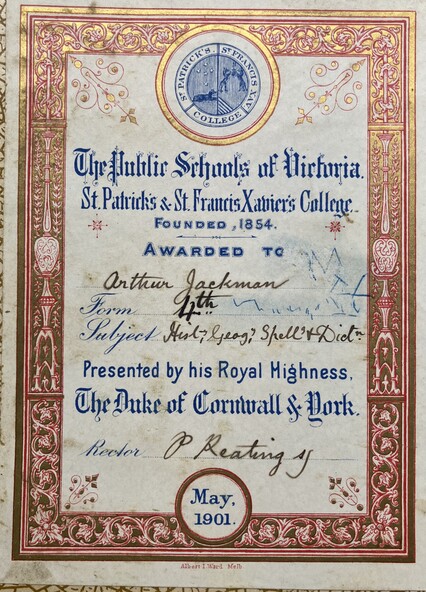 ST PATRICK'S. ST FRANCIS XAV.
COLLEGE
The Public Schools of Victoria.
St. Patrick's & St. Francis Xavier's College.
FOUNDED, 1854.
AWARDED TO
Arthur Jackman
Form 4th
Subject Hist; Geog; Spell'g & Dict'n
Presented by his Royal Highness,
The Duke of Cornwall & York.
Rector P Keating sj
May,
1901.
Melb.